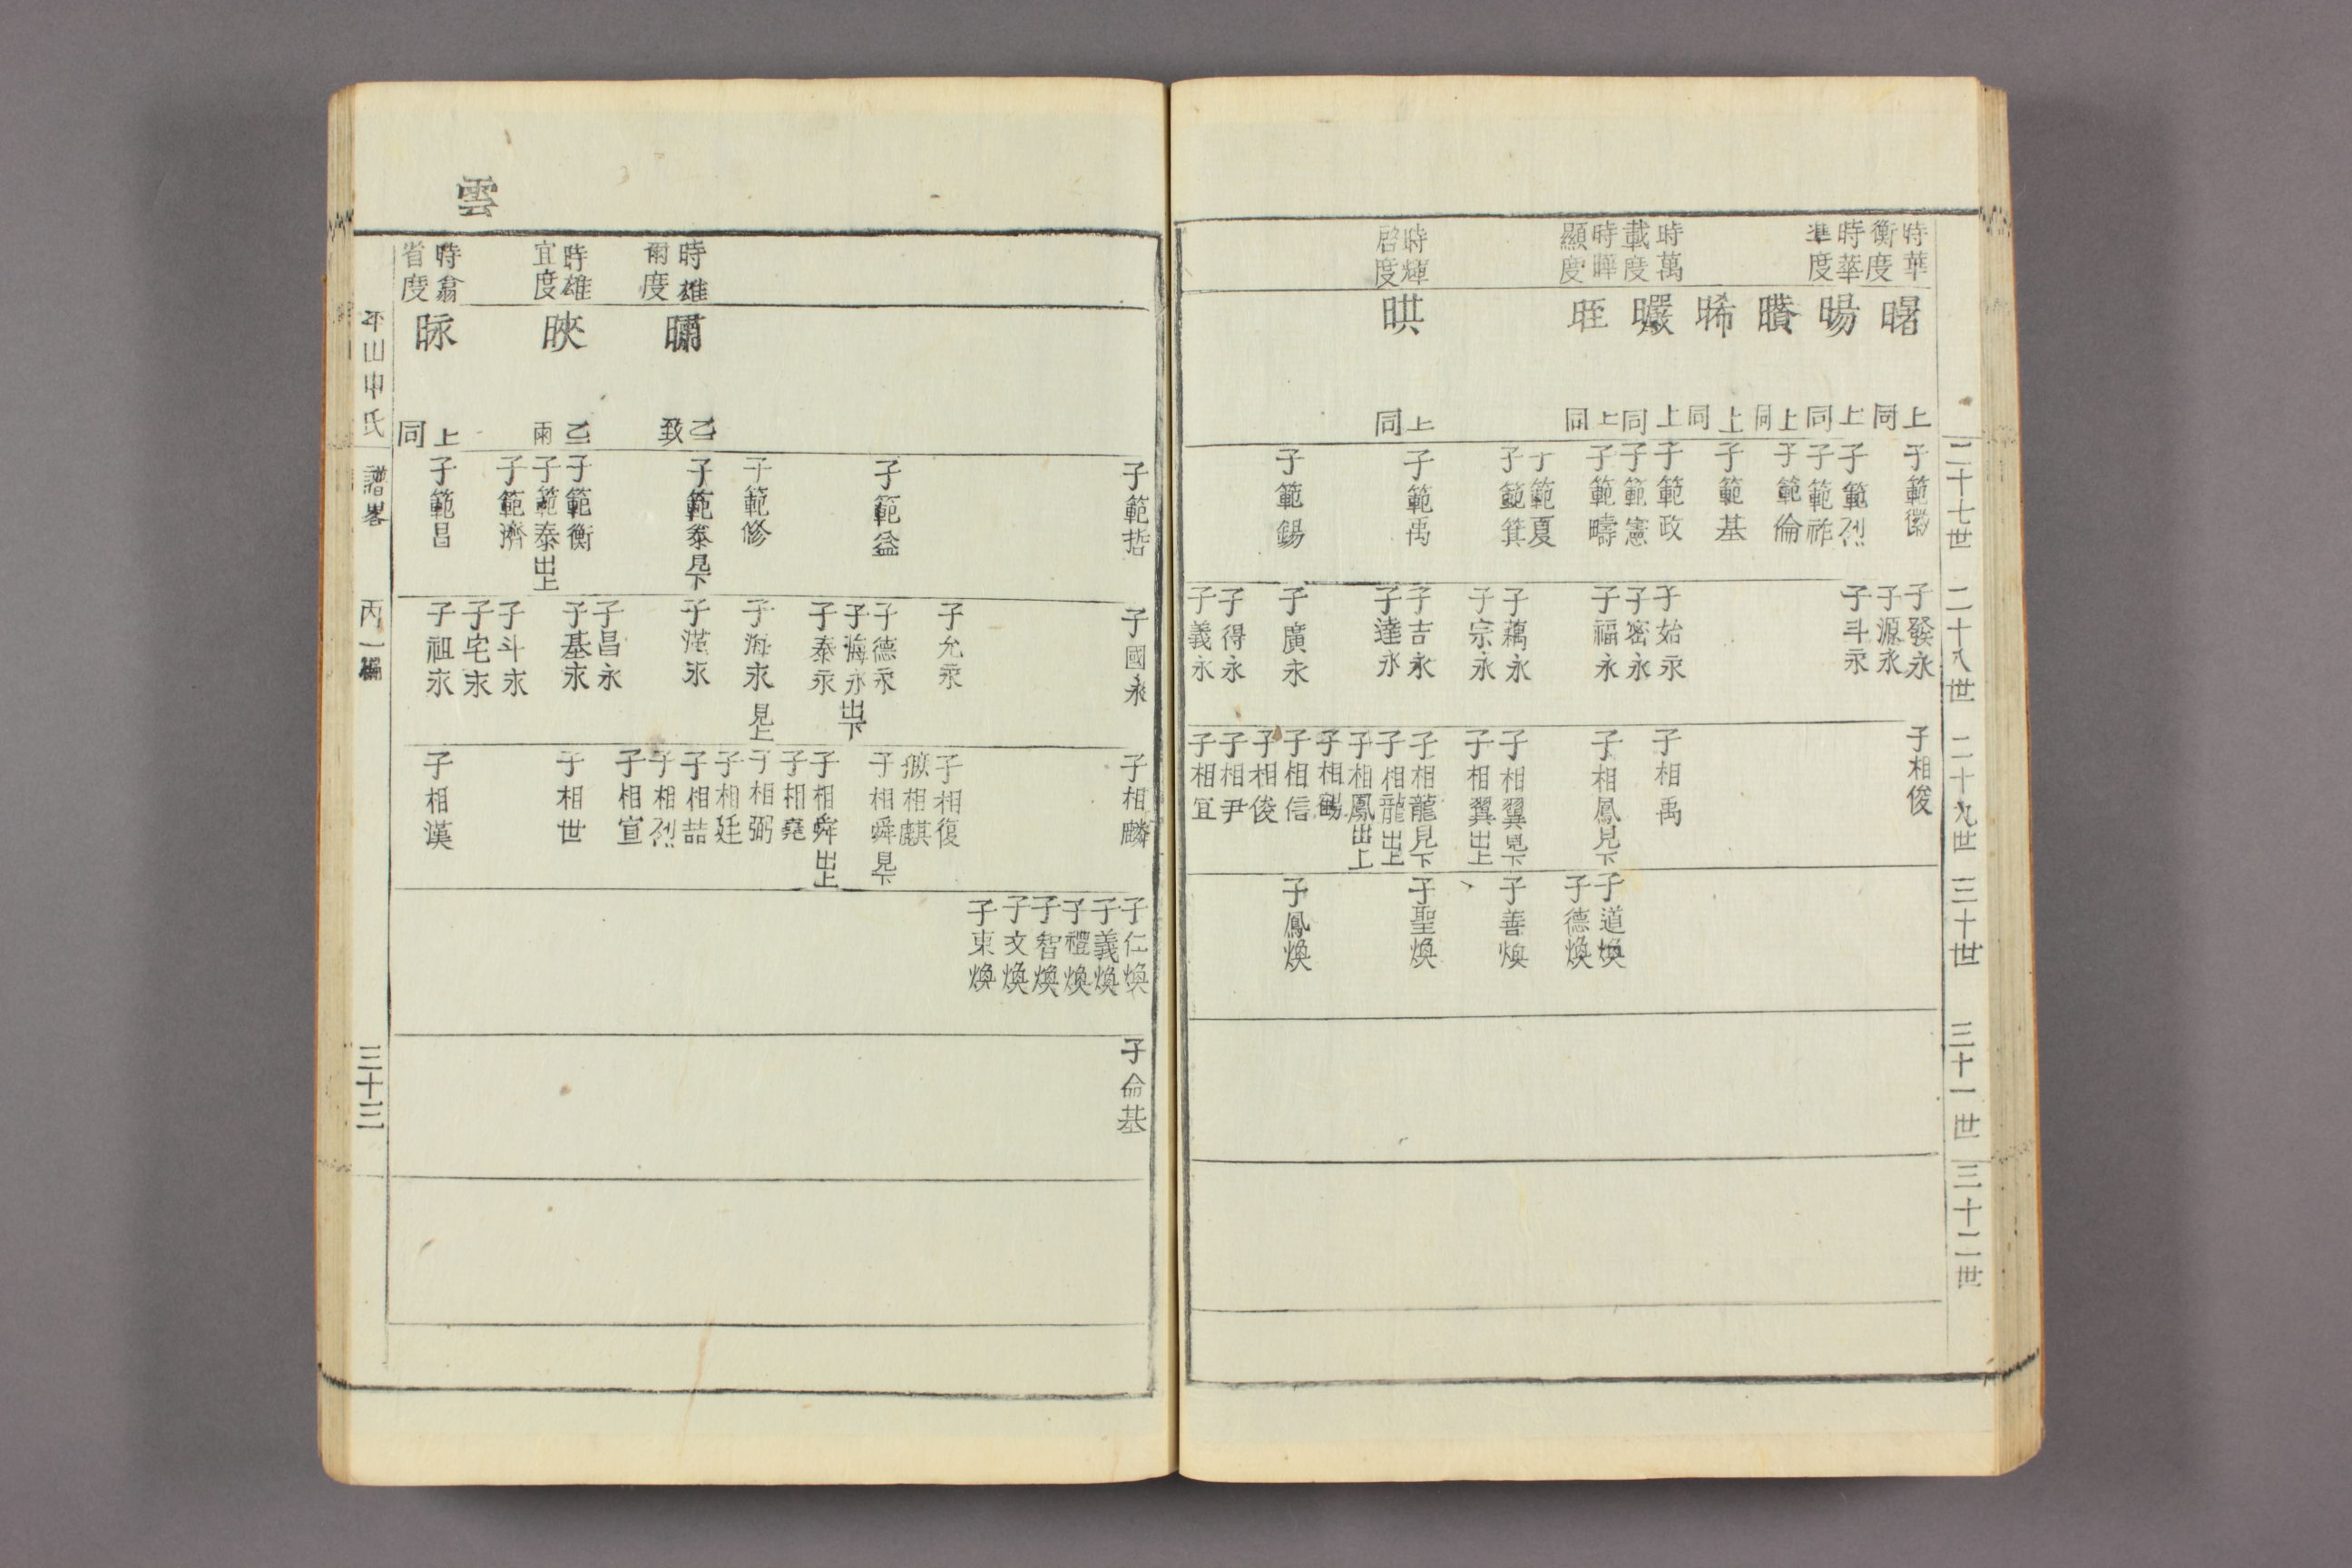 二十七世
二十八世
二十九世
三十世
三十一世
三十二世
時華
衡度
時華
準度
時萬
載度
時曄
顯度
時輝
啓度
曙
暘
晞
曮
晊
㫷
上同
上同
上同
上同
上同
上同
上同
子範徽
子範烈
子範祚
子範倫
子範基
子範政
子範憲
子範疇
子範夏
子範箕
子範禹
子範錫
子發永
子源永
子斗永
子始永
子密永
子福永
子藕永
子宗永
子吉永
子達永
子廣永
子得永
子義永
子相俊
子相禹
子相鳳見下
子相翼見下
子相翼出上
子相龍見下
子相龍出上
子相鳳出上
子相鶴
子相信
子相俊
子相尹
子相宜
子道煥
子德煥
子善煥
子聖煥
子鳳煥
雲
時雄
爾度
時雄
宜度
時翕
省度
映
昹
乙致
乙兩
上同
子範哲
子範益
子範修
子範泰見下
子範衡
子範泰出上
子範濟
子範昌
子國永
子允永
子德永
子海永出下
子泰永
子海永見上
子漢永
子昌永
子基永
子斗永
子宅永
子祖永
子相麟
子相復
嫉相麒
子相舜見下
子相舜出上
子相堯
子相弼
子相廷
子相喆
子相烈
子相宣
子相世
子相漢
子仁煥
子義煥
子禮煥
子智煥
子文煥
子東煥
子命基
平山申氏 譜畧 丙一編 三十三